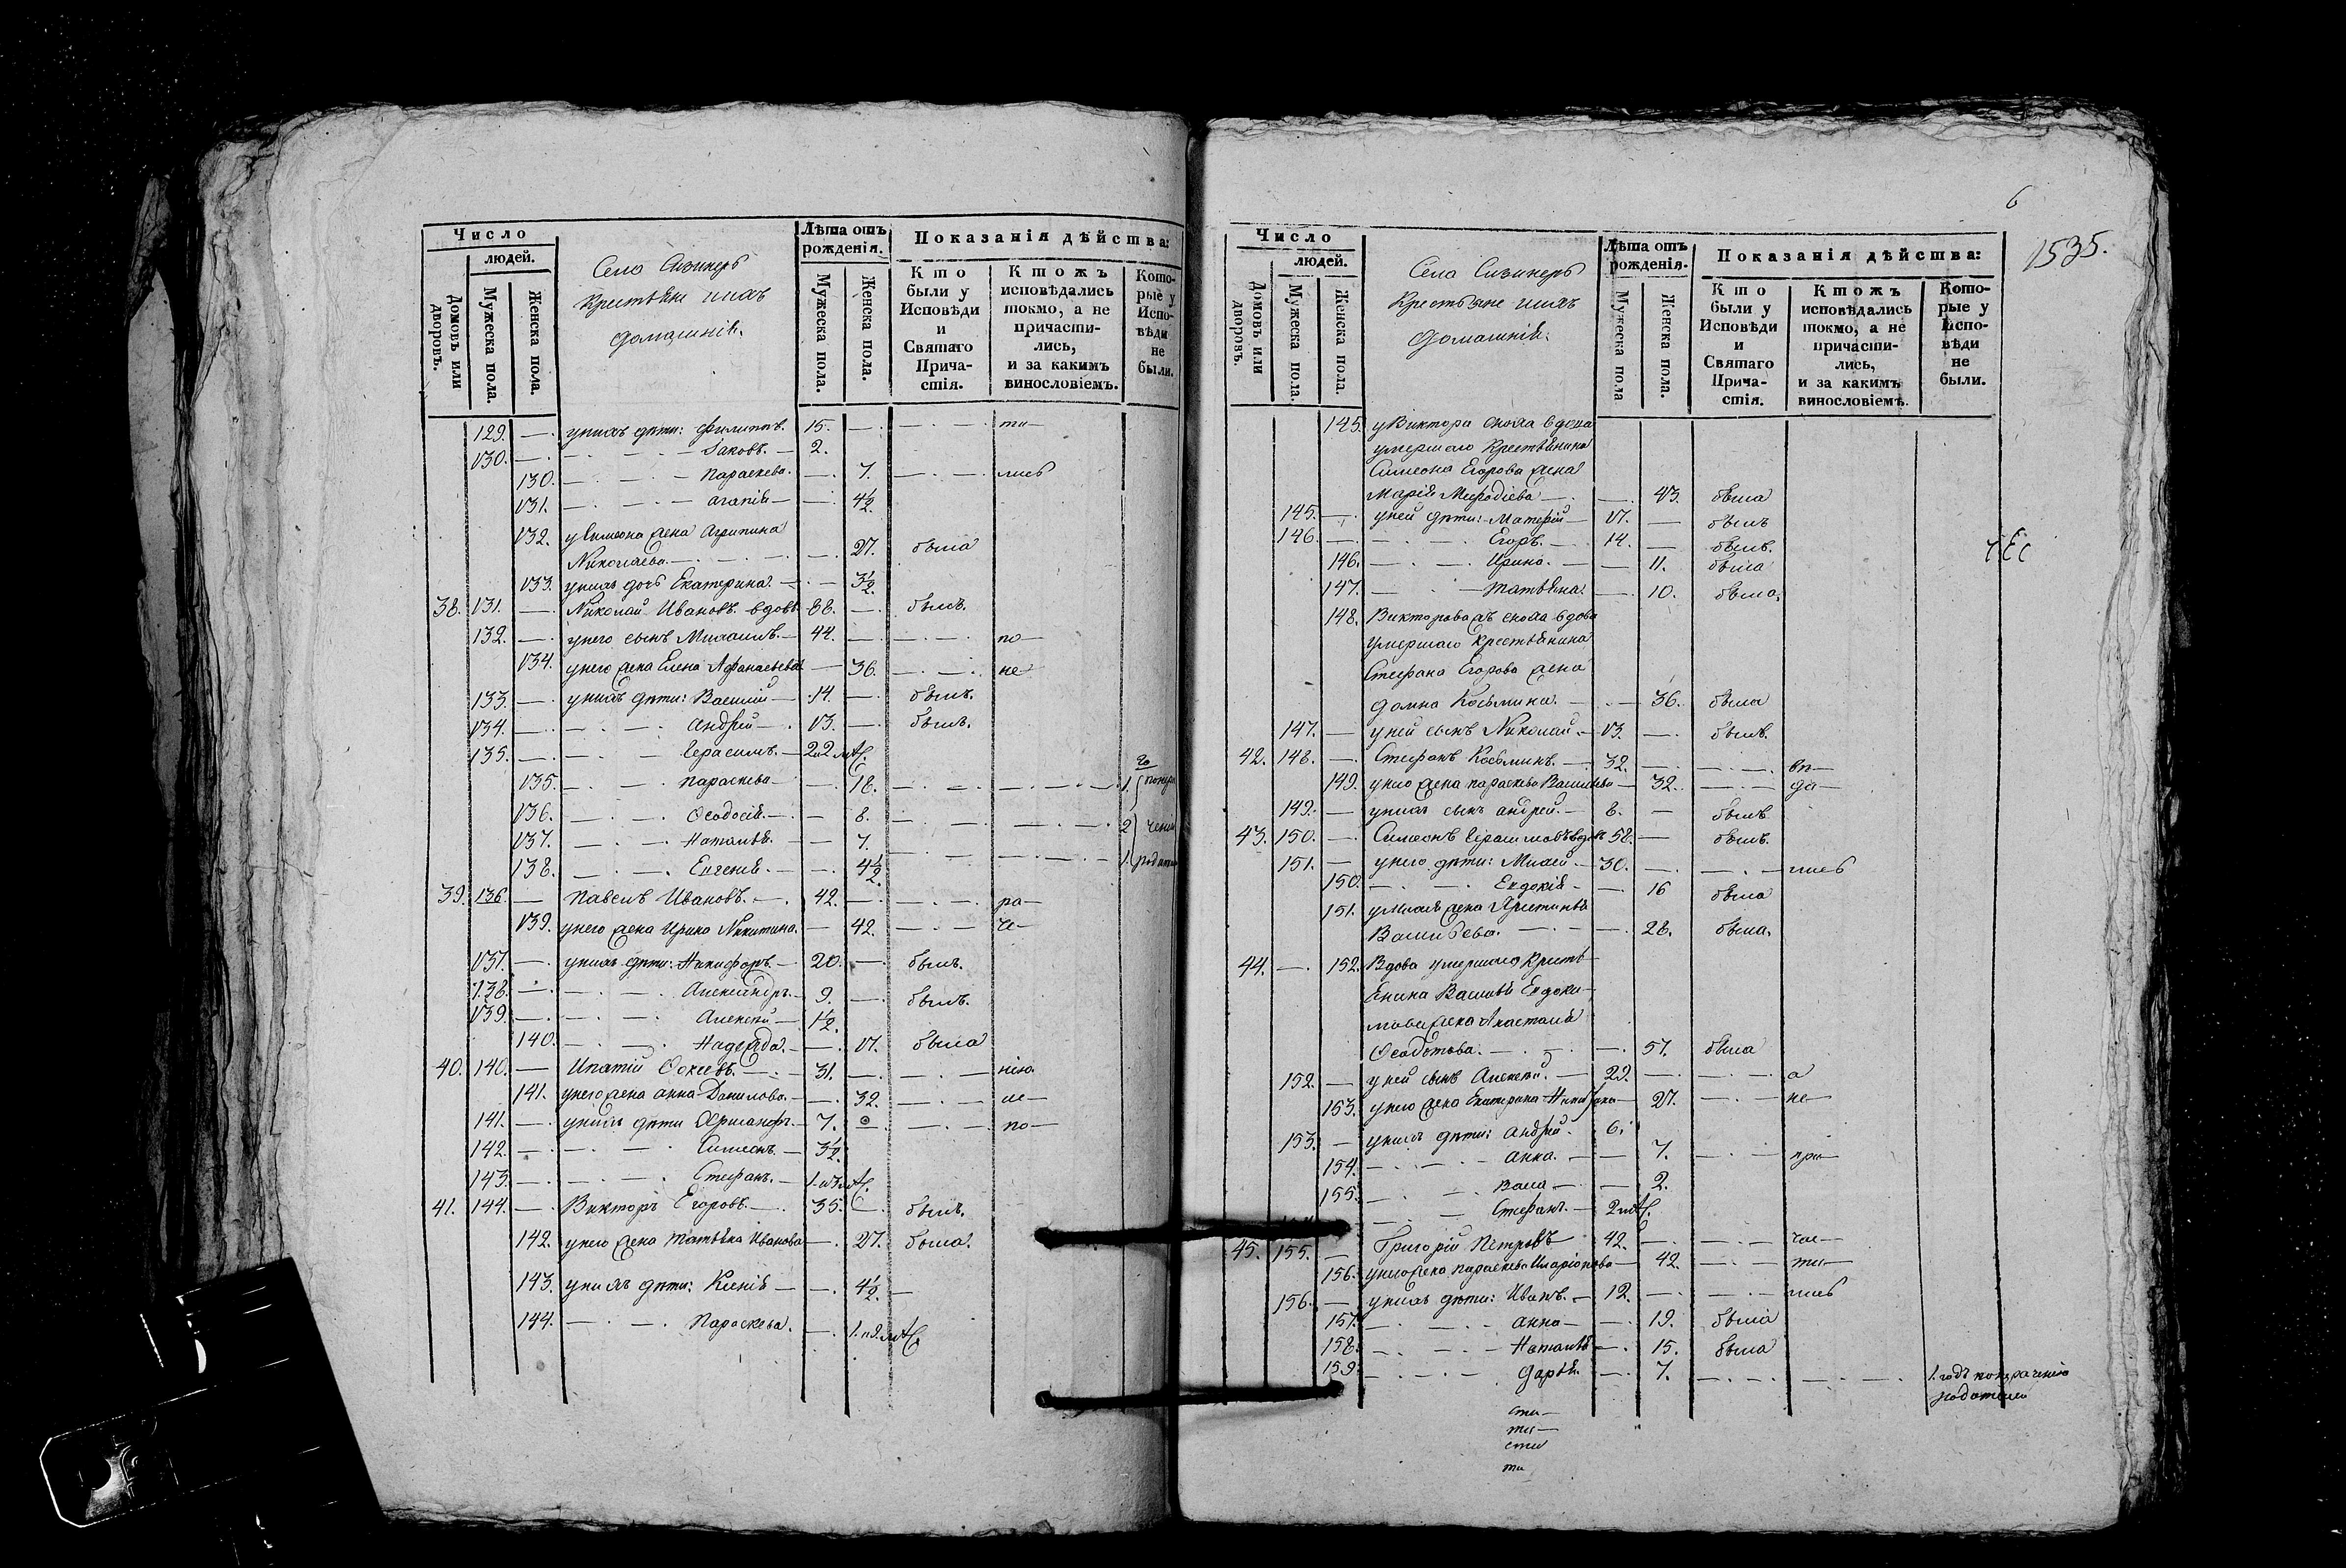 Число
людей.
Домовъ или дворовъ.
Мужеска пола.
Женска пола.
Село Сизинеръ
Крестьяне ихъ
домашнія.
Лѣта отъ рожденія.
Мужеска пола.
Женска пола.
Показанія дѣйства:
Кто были у Исповѣди и Святаго Причастія.
Ктожъ исповѣдались токмо, а не причастились, и за какимъ винословіемъ.
Которые у Исповѣди не были.
129. — у нихъ дѣти: Филиппъ. 15. — — ти—
130. — Іаковъ. — 2.
130. — Параскева. — 7. — лись
131. — Агапія — 4 1/2
132. у Симеона жена Агрипина
Николаева. — 27. была
133. у нихъ дочь Екатерина. — 3 1/2
38. 131. — Николай Ивановъ вдовъ 88. — былъ.
132. — у него сынъ Михаилъ. — 44. — — по—
134. у него жена Елена Афанасьева — 36. — не
133. — у нихъ дѣти: Василій — 14. — былъ.
134. — Андрей — 13. — былъ.
135. — Герасимъ. — 2 и 2 мѣс.
135. — Параскева — 18. — 1.
136. — Ѳеодосія. — 8. — 2
137. — Наталья. — 7.
138. — Евгенія. — 4 1/2 — 1.
39. 136. — Павелъ Ивановъ. — 42. — ра—
139. у него жена Ирина Никитина. — 42. — че—
137. — у нихъ дѣти: Никифоръ. — 20. — былъ.
138. — Александръ. — 9. — былъ.
139. — Алексѣй — 1 1/2
140. — Надежда. — 17. была
40. 140. — Ипатій — 31. — нію
141. у него жена Анна Данилова. — 32. — не—
141. — у нихъ дѣти — 7. — по—
142. — Симеонъ. — 3 1/2
143. — Стефанъ. — 1
41. 144. — Викторъ Егоровъ. — 35. — былъ.
142. у него жена Татьяна Иванова — 27. была.
143. у нихъ дѣти: Ксенія — 4 1/2. —
144. — Параскева. — 1 и 9 мѣс
6
1535.
Число
людей.
Домовъ или дворовъ.
Мужеска пола.
Женска пола.
Села Сизинеръ
Крестьяне ихъ
домашнія.
Лѣта отъ рожденія.
Мужеска пола
Женска пола.
Показанія дѣйства:
Кто были у Исповѣди и Святаго Причастія.
Ктожъ исповѣдались токмо, а не причастились, и за какимъ винословіемъ.
Которые у Исповѣди не были.
145. у Виктора сноха вдова
умершаго крестьянина
Симеона Егорова жена
Марія Мефодіева — 43. была
145. — у ней дѣти: — 17. — былъ
146. — Егоръ. — 14. — былъ.
146. — Ирина. — 11. была
147. — Татьяна. — 10. была.
148. сноха вдова
умершаго крестьянина
Стефана Егорова жена
Домна Косьмина. — 36. была
147. — у ней сынъ Николай — 13. — былъ.
42. 148. — Стефанъ Косьминъ. — 32. — вп—
149. у него жена Параскева Васильева — 32. — да—
149. — у нихъ сынъ Андрей. — 8. — былъ
43. 150. — Симеонъ вдовъ 58. — былъ.
151. — у него дѣти: — 30. — — лись
150. — Евдокія — 16 была
151. жена
Васильева. — 28. была.
44. — 152. Вдова умершаго кресть—
янина Василья Евдоки—
мова жена
Ѳеодотова. — 57. была
152. — у ней сынъ Алексѣй. — 29. — а
153. у него жена Екатерина — 27. — не—
153. — у нихъ дѣти: Андрей. 6.
154. — Анна. — 7. — при—
155. — — 2.
— Стефанъ. — 2 мѣс.
45. 155. — Григорій Петровъ — 42. — час—
156. у него жена Параскева Иларіонова — 42. — ти—
156. — у нихъ дѣти: Иванъ. — 12. — лись
157. — Анна — 19. была
158. — Наталья — 15. была
159. — Дарья. — 7. — 1. годъ по нерачению
родителей
сти—
ти—
сти
ти